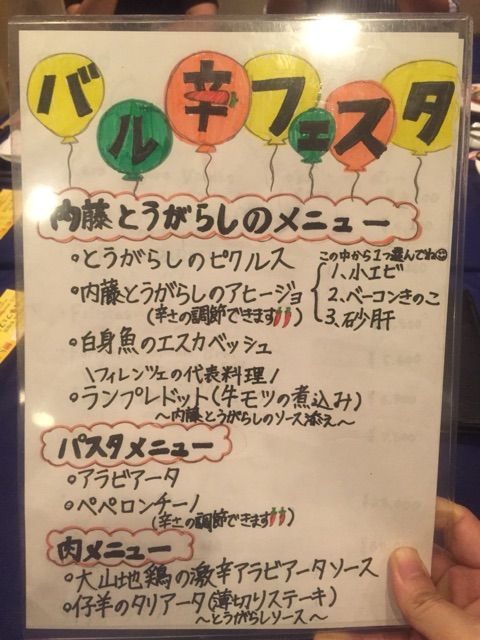 バル辛フェスタ
内藤とうがらしのメニュー
・とうがらしのピクルス
・内藤とうがらしのアヒージョ
(辛さの調節できます🌶🌶)
この中から1つ選んでね☺
1、小エビ
2、ベーコンきのこ
3、砂肝
・白身魚のエスカベッシュ
\フィレンツェの代表料理/
・ランプレドット(牛モツの煮込み)
〜内藤とうがらしのソース添え〜
パスタメニュー
・アラビアータ
・ペペロンチーノ
(辛さの調節できます🌶🌶)
肉メニュー
・大山地鶏の激辛アラビアータソース
・仔羊のタリアータ(薄切りステーキ)
〜とうがらしソース〜